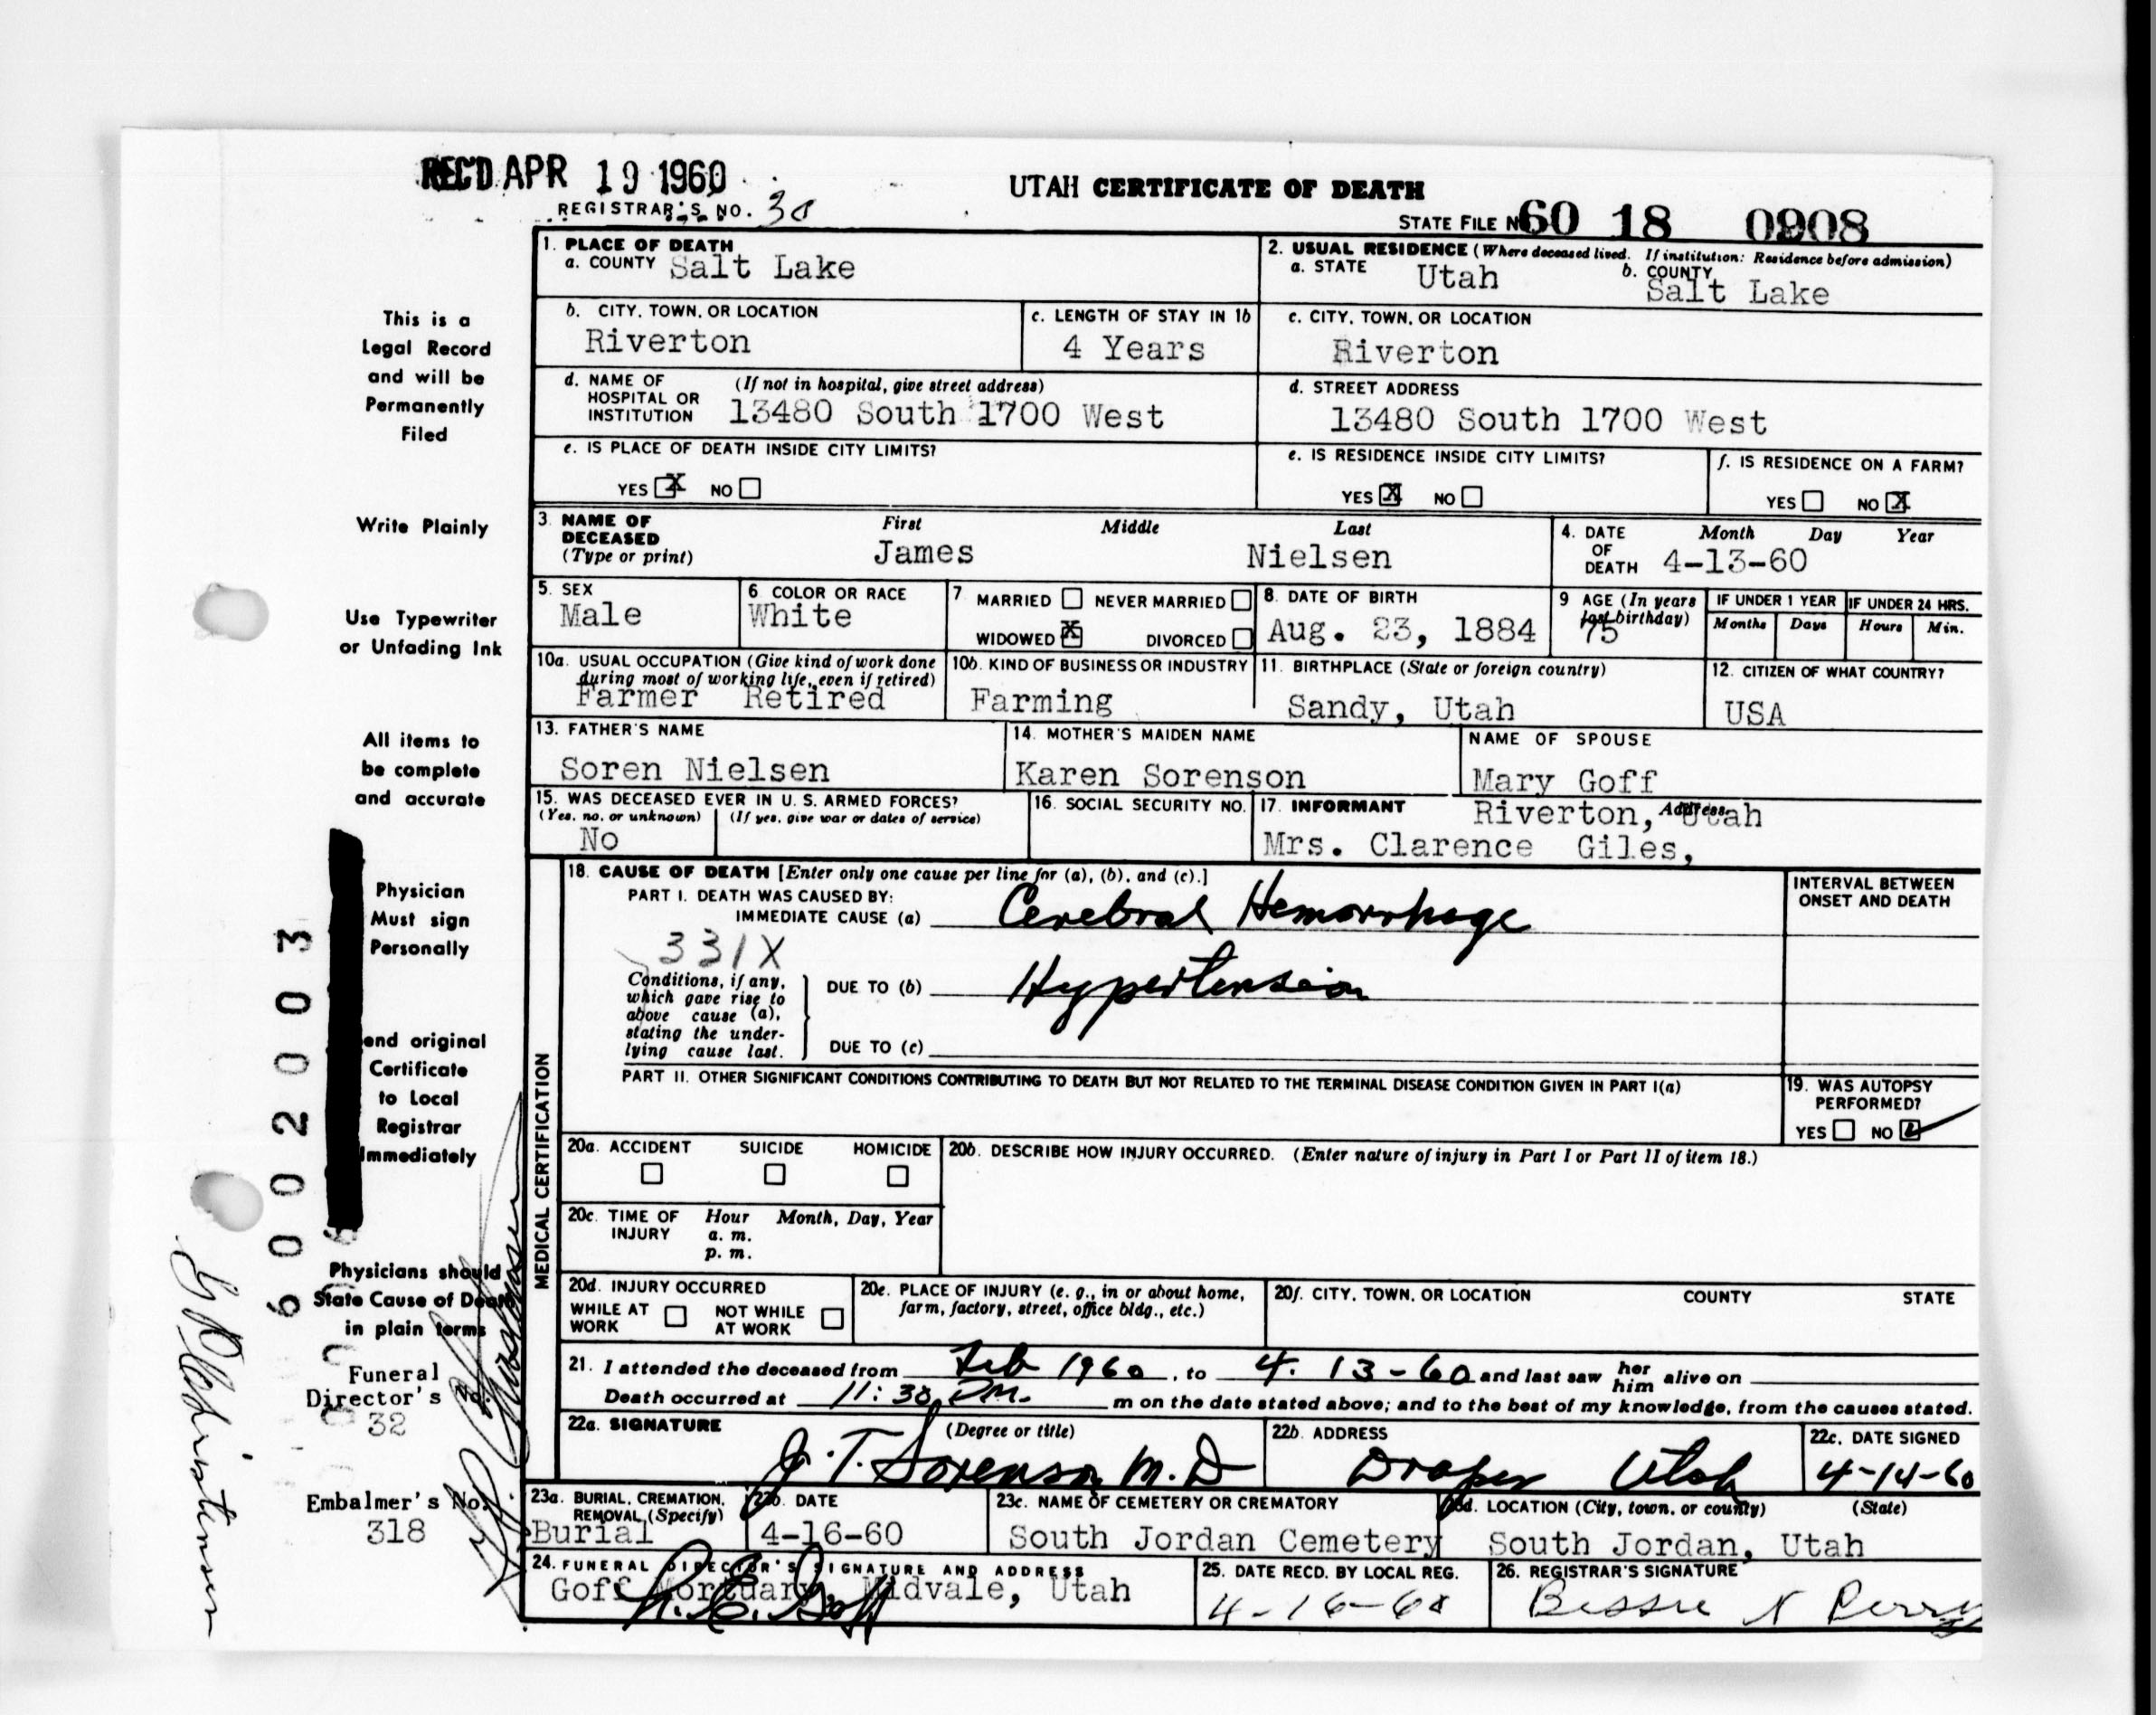 REC'D APR 19 1960
UTAH CERTIFICATE OF DEATH
REGISTRAR'S NO. 30
STATE FILE NO 60 18 0908
1. PLACE OF DEATH
a. COUNTY Salt Lake
2. USUAL RESIDENCE (Where deceased lived. If institution: Residence before admission)
a. STATE Utah b. COUNTY Salt Lake
b. CITY, TOWN, OR LOCATION Riverton
c. LENGTH OF STAY IN 1b 4 Years
c. CITY, TOWN, OR LOCATION Riverton
d. NAME OF HOSPITAL OR INSTITUTION (If not in hospital, give street address) 13480 South 1700 West
d. STREET ADDRESS 13480 South 1700 West
e. IS PLACE OF DEATH INSIDE CITY LIMITS?
YES X NO
e. IS RESIDENCE INSIDE CITY LIMITS?
YES X NO
f. IS RESIDENCE ON A FARM?
YES NO X
3. NAME OF DECEASED (Type or print) First Middle Last
James Nielsen
4. DATE OF DEATH Month Day Year
4-13-60
5. SEX Male
6. COLOR OR RACE White
7. MARRIED NEVER MARRIED
WIDOWED X DIVORCED
8. DATE OF BIRTH Aug. 23, 1884
9 AGE (In years last birthday) 75
IF UNDER 1 YEAR Months Days
IF UNDER 24 HRS. Hours Min.
10a. USUAL OCCUPATION (Give kind of work done during most of working life, even if retired)
Farmer Retired
10b. KIND OF BUSINESS OR INDUSTRY Farming
11. BIRTHPLACE (State or foreign country) Sandy, Utah
12. CITIZEN OF WHAT COUNTRY? USA
13. FATHER'S NAME Soren Nielsen
14. MOTHER'S MAIDEN NAME Karen Sorenson
NAME OF SPOUSE Mary Goff
15. WAS DECEASED EVER IN U. S. ARMED FORCES?
(Yes, no, or unknown) (If yes, give war or dates of service)
No
16. SOCIAL SECURITY NO.
17. INFORMANT Address
Riverton, Utah
Mrs. Clarence Giles,
18. CAUSE OF DEATH [Enter only one cause per line for (a), (b), and (c).]
PART I. DEATH WAS CAUSED BY:
IMMEDIATE CAUSE (a) Cerebral Hemorrhage
331X
Conditions, if any, which gave rise to above cause (a), stating the underlying cause last.
DUE TO (b) Hypertension
DUE TO (c)
INTERVAL BETWEEN ONSET AND DEATH
PART II. OTHER SIGNIFICANT CONDITIONS CONTRIBUTING TO DEATH BUT NOT RELATED TO THE TERMINAL DISEASE CONDITION GIVEN IN PART I(a)
19. WAS AUTOPSY PERFORMED?
YES NO
20a. ACCIDENT SUICIDE HOMICIDE
20b. DESCRIBE HOW INJURY OCCURRED. (Enter nature of injury in Part I or Part II of item 18.)
20c. TIME OF INJURY Hour a. m. p. m. Month, Day, Year
20d. INJURY OCCURRED
WHILE AT WORK NOT WHILE AT WORK
20e. PLACE OF INJURY (e. g., in or about home, farm, factory, street, office bldg., etc.)
20f. CITY, TOWN, OR LOCATION COUNTY STATE
21. I attended the deceased from Feb 1960, to 4. 13-60 and last saw her him alive on
Death occurred at 11:30 P.M. m on the date stated above; and to the best of my knowledge, from the causes stated.
22a. SIGNATURE (Degree or title)
J. T. Sorenson M.D
22b. ADDRESS Draper Utah
22c. DATE SIGNED 4-14-60
23a. BURIAL, CREMATION, REMOVAL (Specify) Burial
23b. DATE 4-16-60
23c. NAME OF CEMETERY OR CREMATORY South Jordan Cemetery
23d. LOCATION (City, town, or county) (State)
South Jordan, Utah
24. FUNERAL DIRECTOR'S SIGNATURE AND ADDRESS
Goff Mortuary, Midvale, Utah
25. DATE RECD. BY LOCAL REG. 4-16-60
26. REGISTRAR'S SIGNATURE Bessie N Perry
MEDICAL CERTIFICATION
This is a
Legal Record
and will be
Permanently
Filed
Write Plainly
Use Typewriter
or Unfading Ink
All items to
be complete
and accurate
Physician
Must sign
Personally
end original
Certificate
to Local
Registrar
Immediately
Physicians should
State Cause of Death
in plain terms
Funeral
Director's No.
32
Embalmer's No.
318
6002003